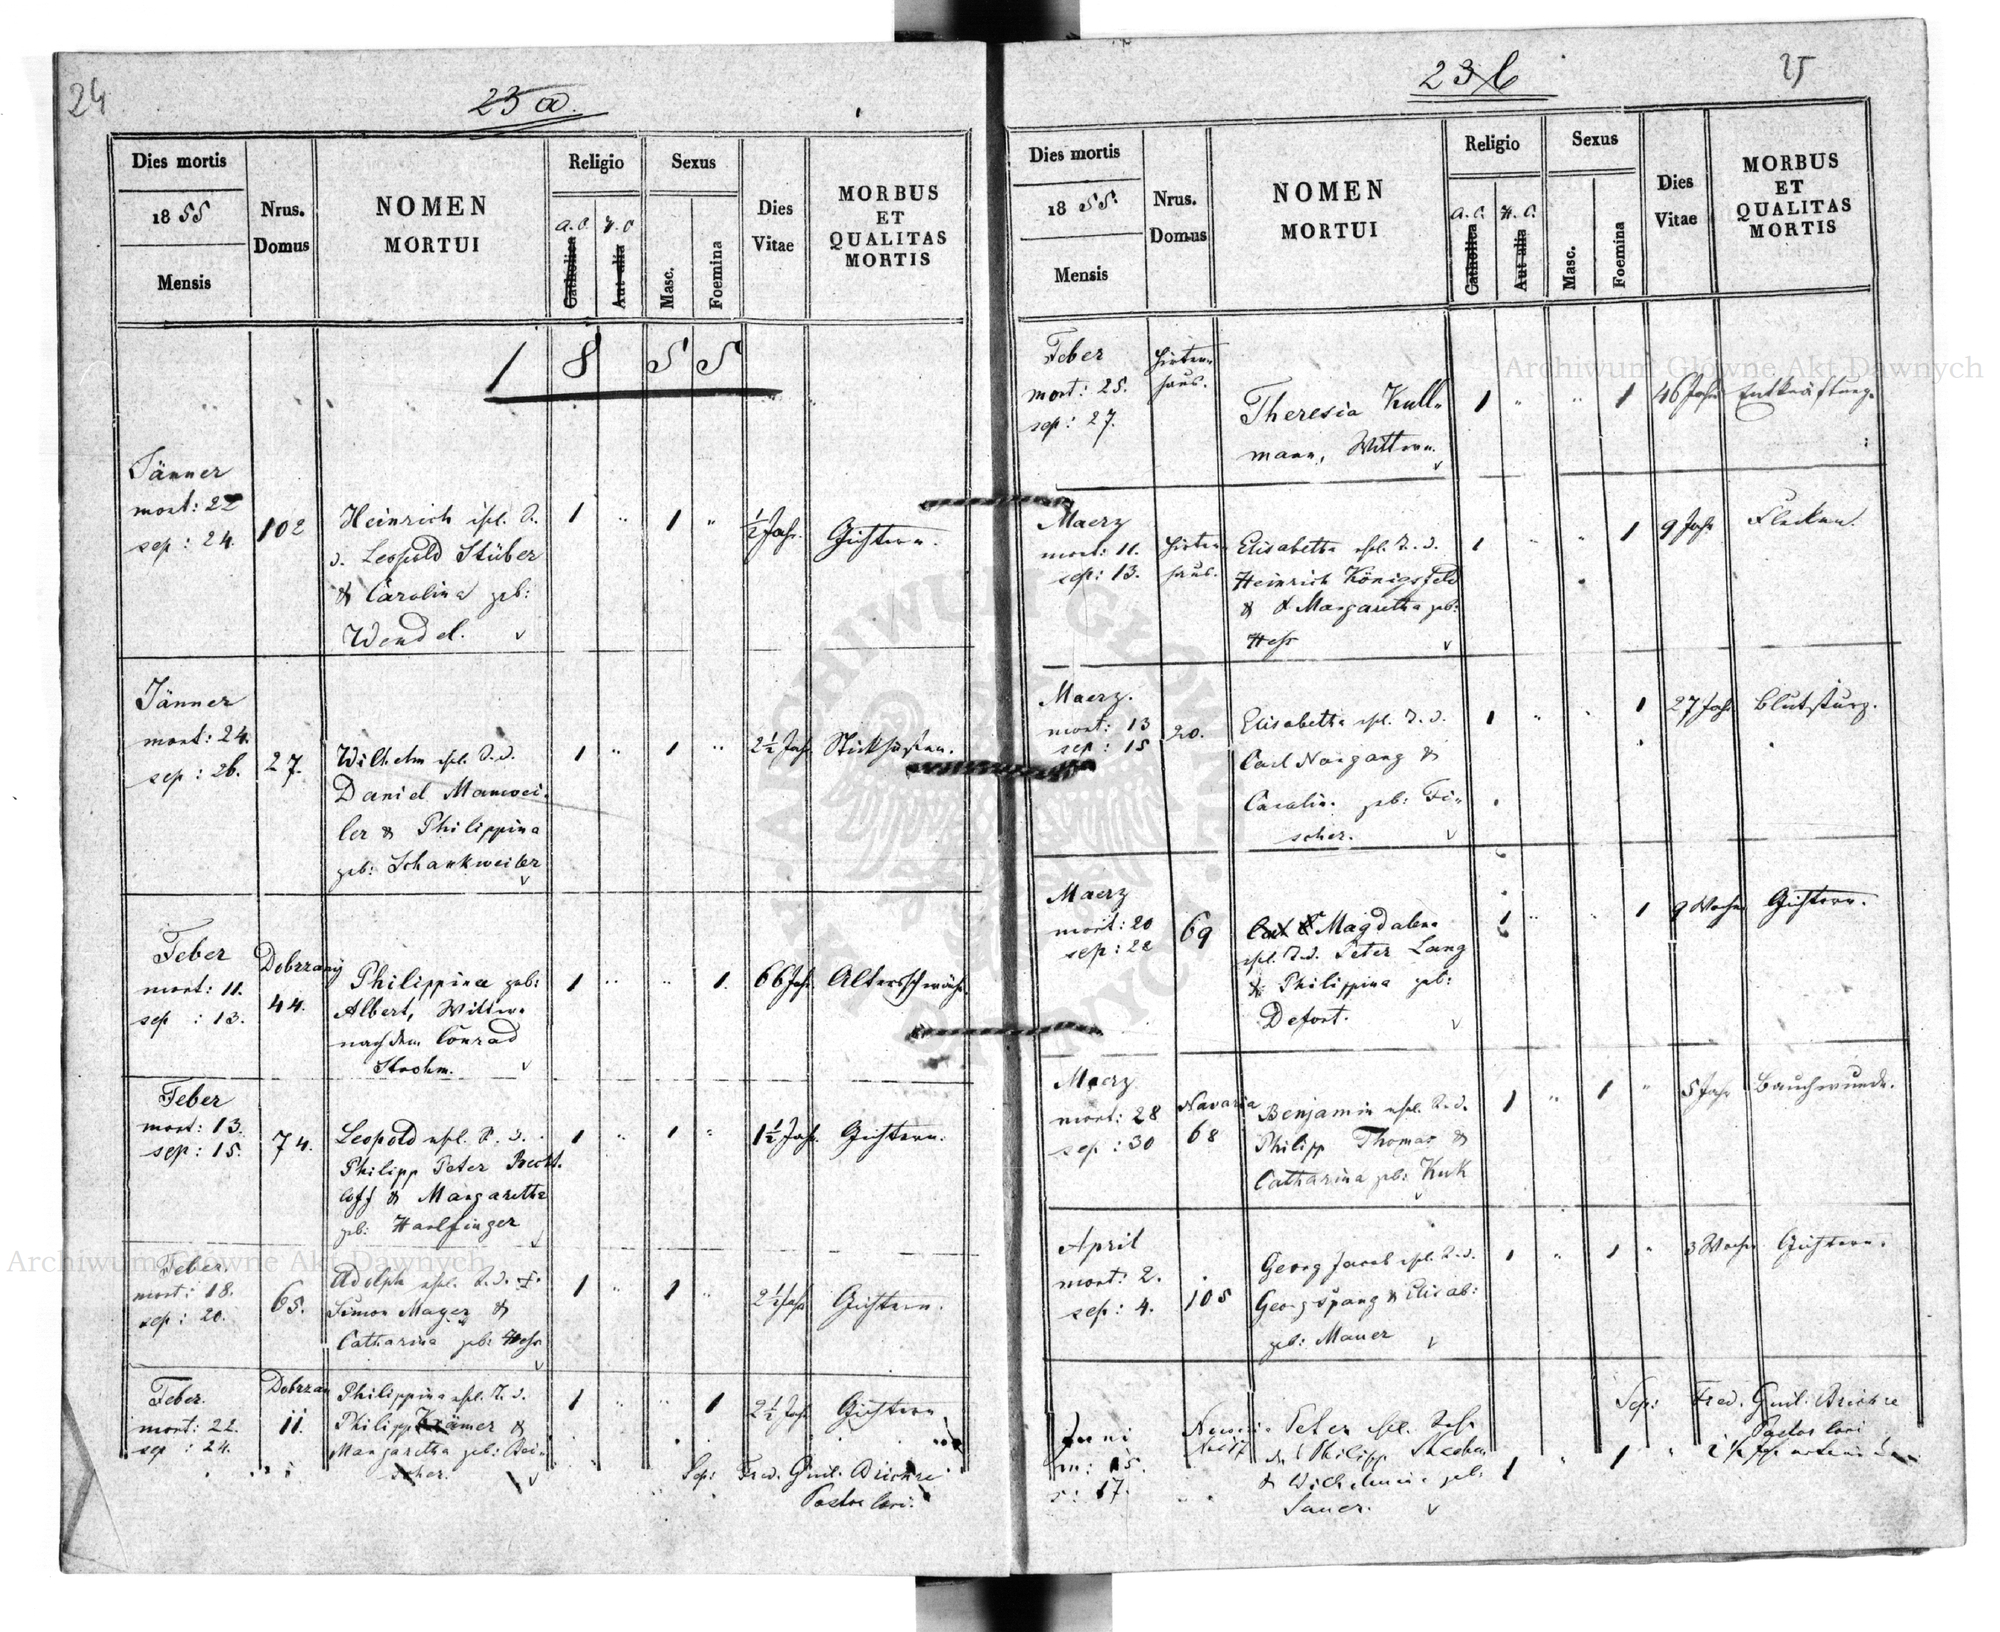 24
23 a.
Dies mortis
1855
Mensis
Nrus.
Domus
NOMEN
MORTUI
Religio
A.C.
H.C
Catholica
Aut alia
Sexus
Masc.
Foemina
Dies
Vitae
MORBUS
ET
QUALITAS
MORTIS
1855
Jänner
mort: 22
sep: 24.
102
Heinrich ehl. S.
d. Leopold Stüber
& Carolina geb:
Wendel. v
1 " 1 "
½ Jahr.
Gichtern.
Jänner
mort: 24.
sep: 26.
27.
Wilhelm ehl. S. d.
Daniel Manwei-
ler & Philippina
geb: Schankweiler
v
1 " 1 "
2½ Jahr
Stickhusten.
Feber
mort: 11.
sep: 13.
Dobrzany
44.
Philippina geb:
Albert, Wittwe
nach dem Conrad
Strohm. v
1 " " 1.
66 Jahr
Altersschwäche
Feber
mort: 13.
sep: 15.
74.
Leopold ehl. S. d.
Philipp Peter Becht-
loff & Margaretha
geb: Haolfinger
1 " 1 "
1½ Jahr.
Gichtern.
Feber.
mort: 18.
sep: 20.
65.
Adolph ehl. S. d.
Simon Mayer &
Catharina geb: Hess
v
1 " 1 "
2½ Jahr
Gichtern.
Feber.
mort: 22.
sep: 24.
Dobrzan
11.
Philippina ehl. T. d.
Philipp Krämer &
Margaretha geb: Rei-
scher. v
1 " " 1
2½ Jahr
Gichtern
Sep: Fred. Guil.
Pastor loci.
23 b
25
Dies mortis
1855.
Mensis
Nrus.
Domus
NOMEN
MORTUI
Religio
A.C.
H.C.
Catholica
Aut alia
Sexus
Masc.
Foemina
Dies
Vitae
MORBUS
ET
QUALITAS
MORTIS
Feber
mort: 25.
sep: 27.
Hirten-
haus.
Theresia Kull-
mann, Wittwe.
v
1 " " 1
46 Jahr
Entkräftung.
Maerz
mort: 11.
sep: 13.
Hirten-
haus.
Elisabetha ehl. T. d.
Heinrich Königsfeld
& Margaretha geb:
Hess v
1 " " 1
9 Jahr
Flecken.
Maerz.
mort: 13
sep: 15
20.
Elisabetha ehl. T. d.
Carl Nargang &
Carolin. geb: Fi-
scher. v
1 " " 1
27 Jahr
Blutsturz.
Maerz
mort: 20
sep: 22
69
Magdalena
ehl. T. d. Peter Lang
& Philippina geb:
Defort. v
1 " " 1
9 Wochen
Gichtern.
Maerz
mort: 28
sep: 30
Navaria
68
Benjamin ehl. S. d.
Philipp Thomas &
Catharina geb: Kuk
v
1 " 1 "
5 Jahr
Bauchwunde.
April
mort: 2.
sep: 4.
105
Georg Jacob ehl. S. d.
Georg Spang & Elisab:
geb: Mauer v
1 " 1 "
3 Wochen
Gichtern.
Sep: Fred. Guil.
Pastor loci
Juni
m: 15.
s: 17.
Peter ehl. Sohn
d. Philipp
& Wilhelmine geb:
Sauer. v
1 " 1 "
2½ Jhr
Archiwum Główne Akt Dawnych
Archiwum Główne Akt Dawnych
ARCHIWUM GŁÓWNE AKT DAWNYCH